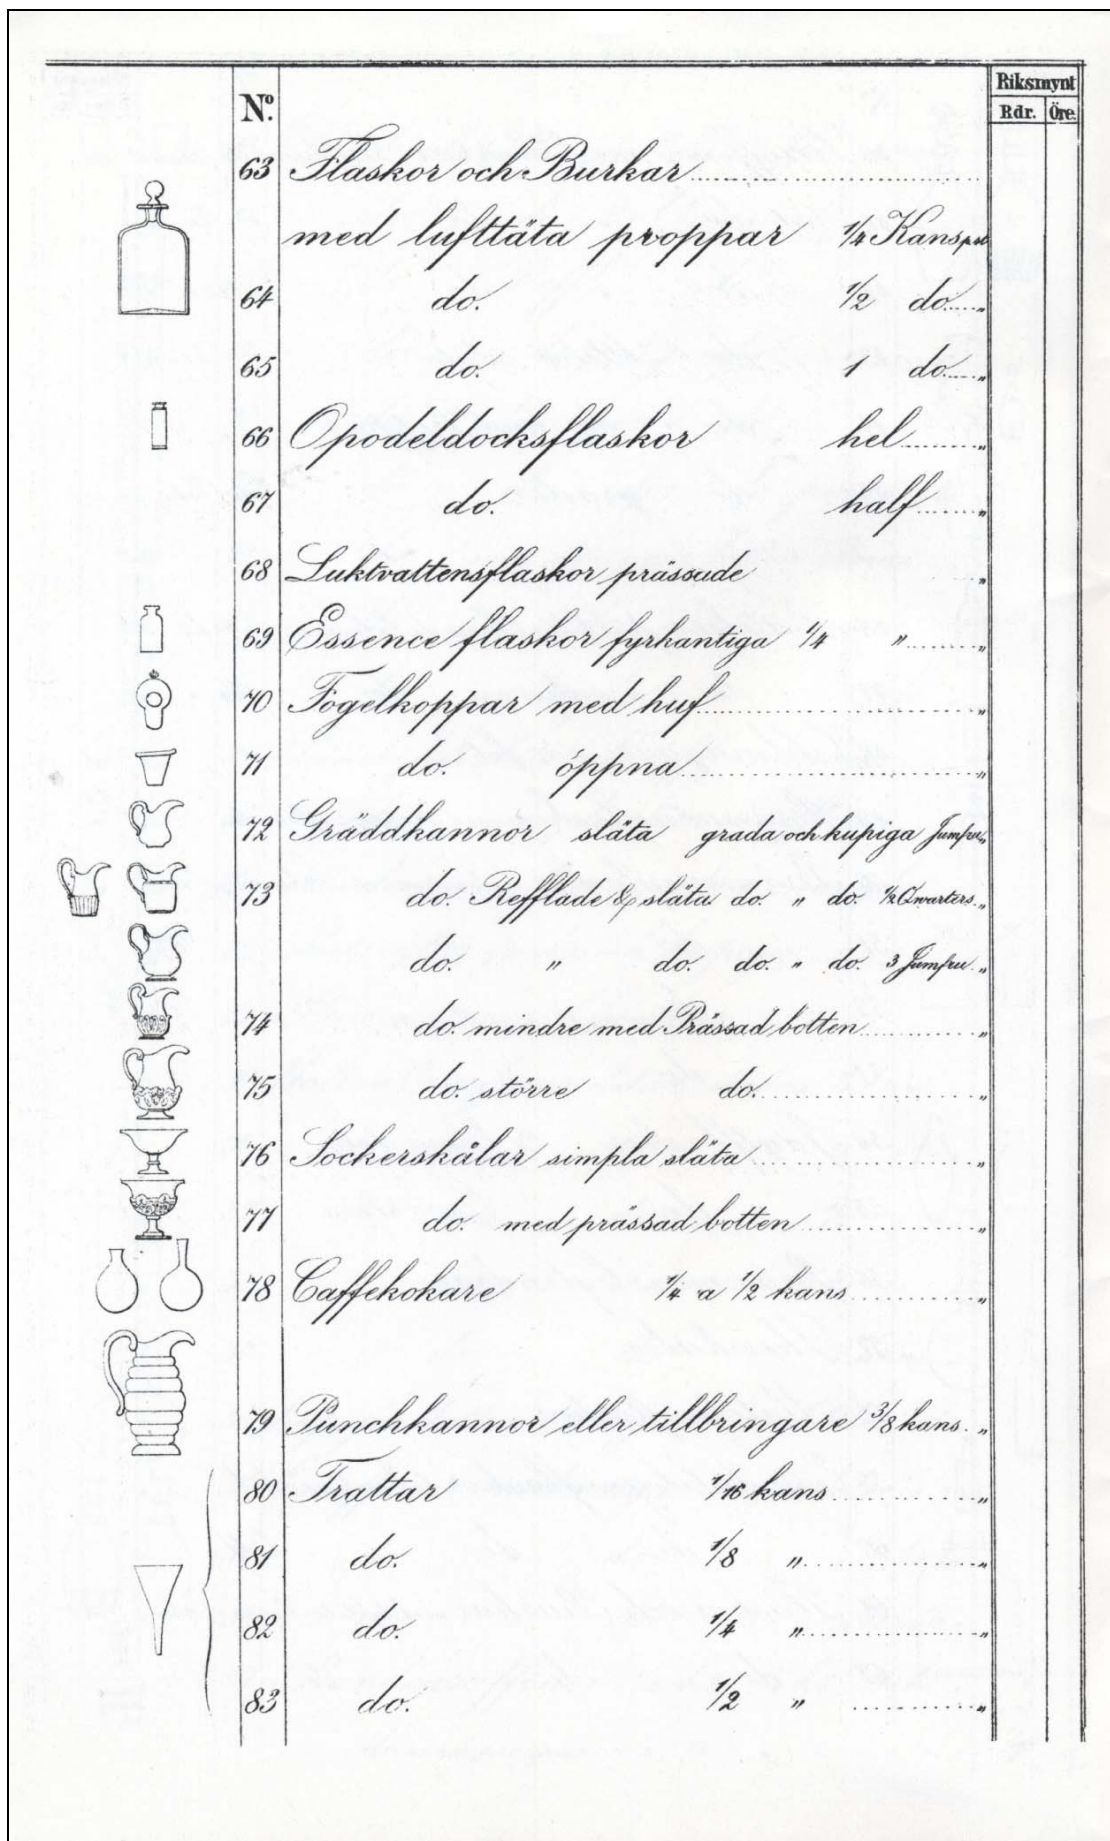 Nº.
Riksmynt
Rdr. Öre
63 Flaskor och Burkar
med lufttäta proppar 1/4 Kans
64 do. 1/2 do. "
65 do. 1 do. "
66 Opodeldocksflaskor hel "
67 do. half "
68 Luktvattensflaskor prässade "
69 Essence flaskor fyrkantiga 1/4 " "
70 Fogelkoppar med huf "
71 do. öppna "
72 Gräddkannor släta grada och kupiga Jumfru "
73 do. Refflade & släta do. " do. 1/2 Qwarters "
do. " do. do. " do. 3 Jumfru "
74 do. mindre med Prässad botten "
75 do. större do. "
76 Sockerskålar simpla släta "
77 do. med prässad botten "
78 Caffekokare 1/4 a 1/2 kans "
79 Punchkannor eller tillbringare 3/8 kans. "
80 Trattar 1/16 kans "
81 do. 1/8 " "
82 do. 1/4 " "
83 do. 1/2 " "